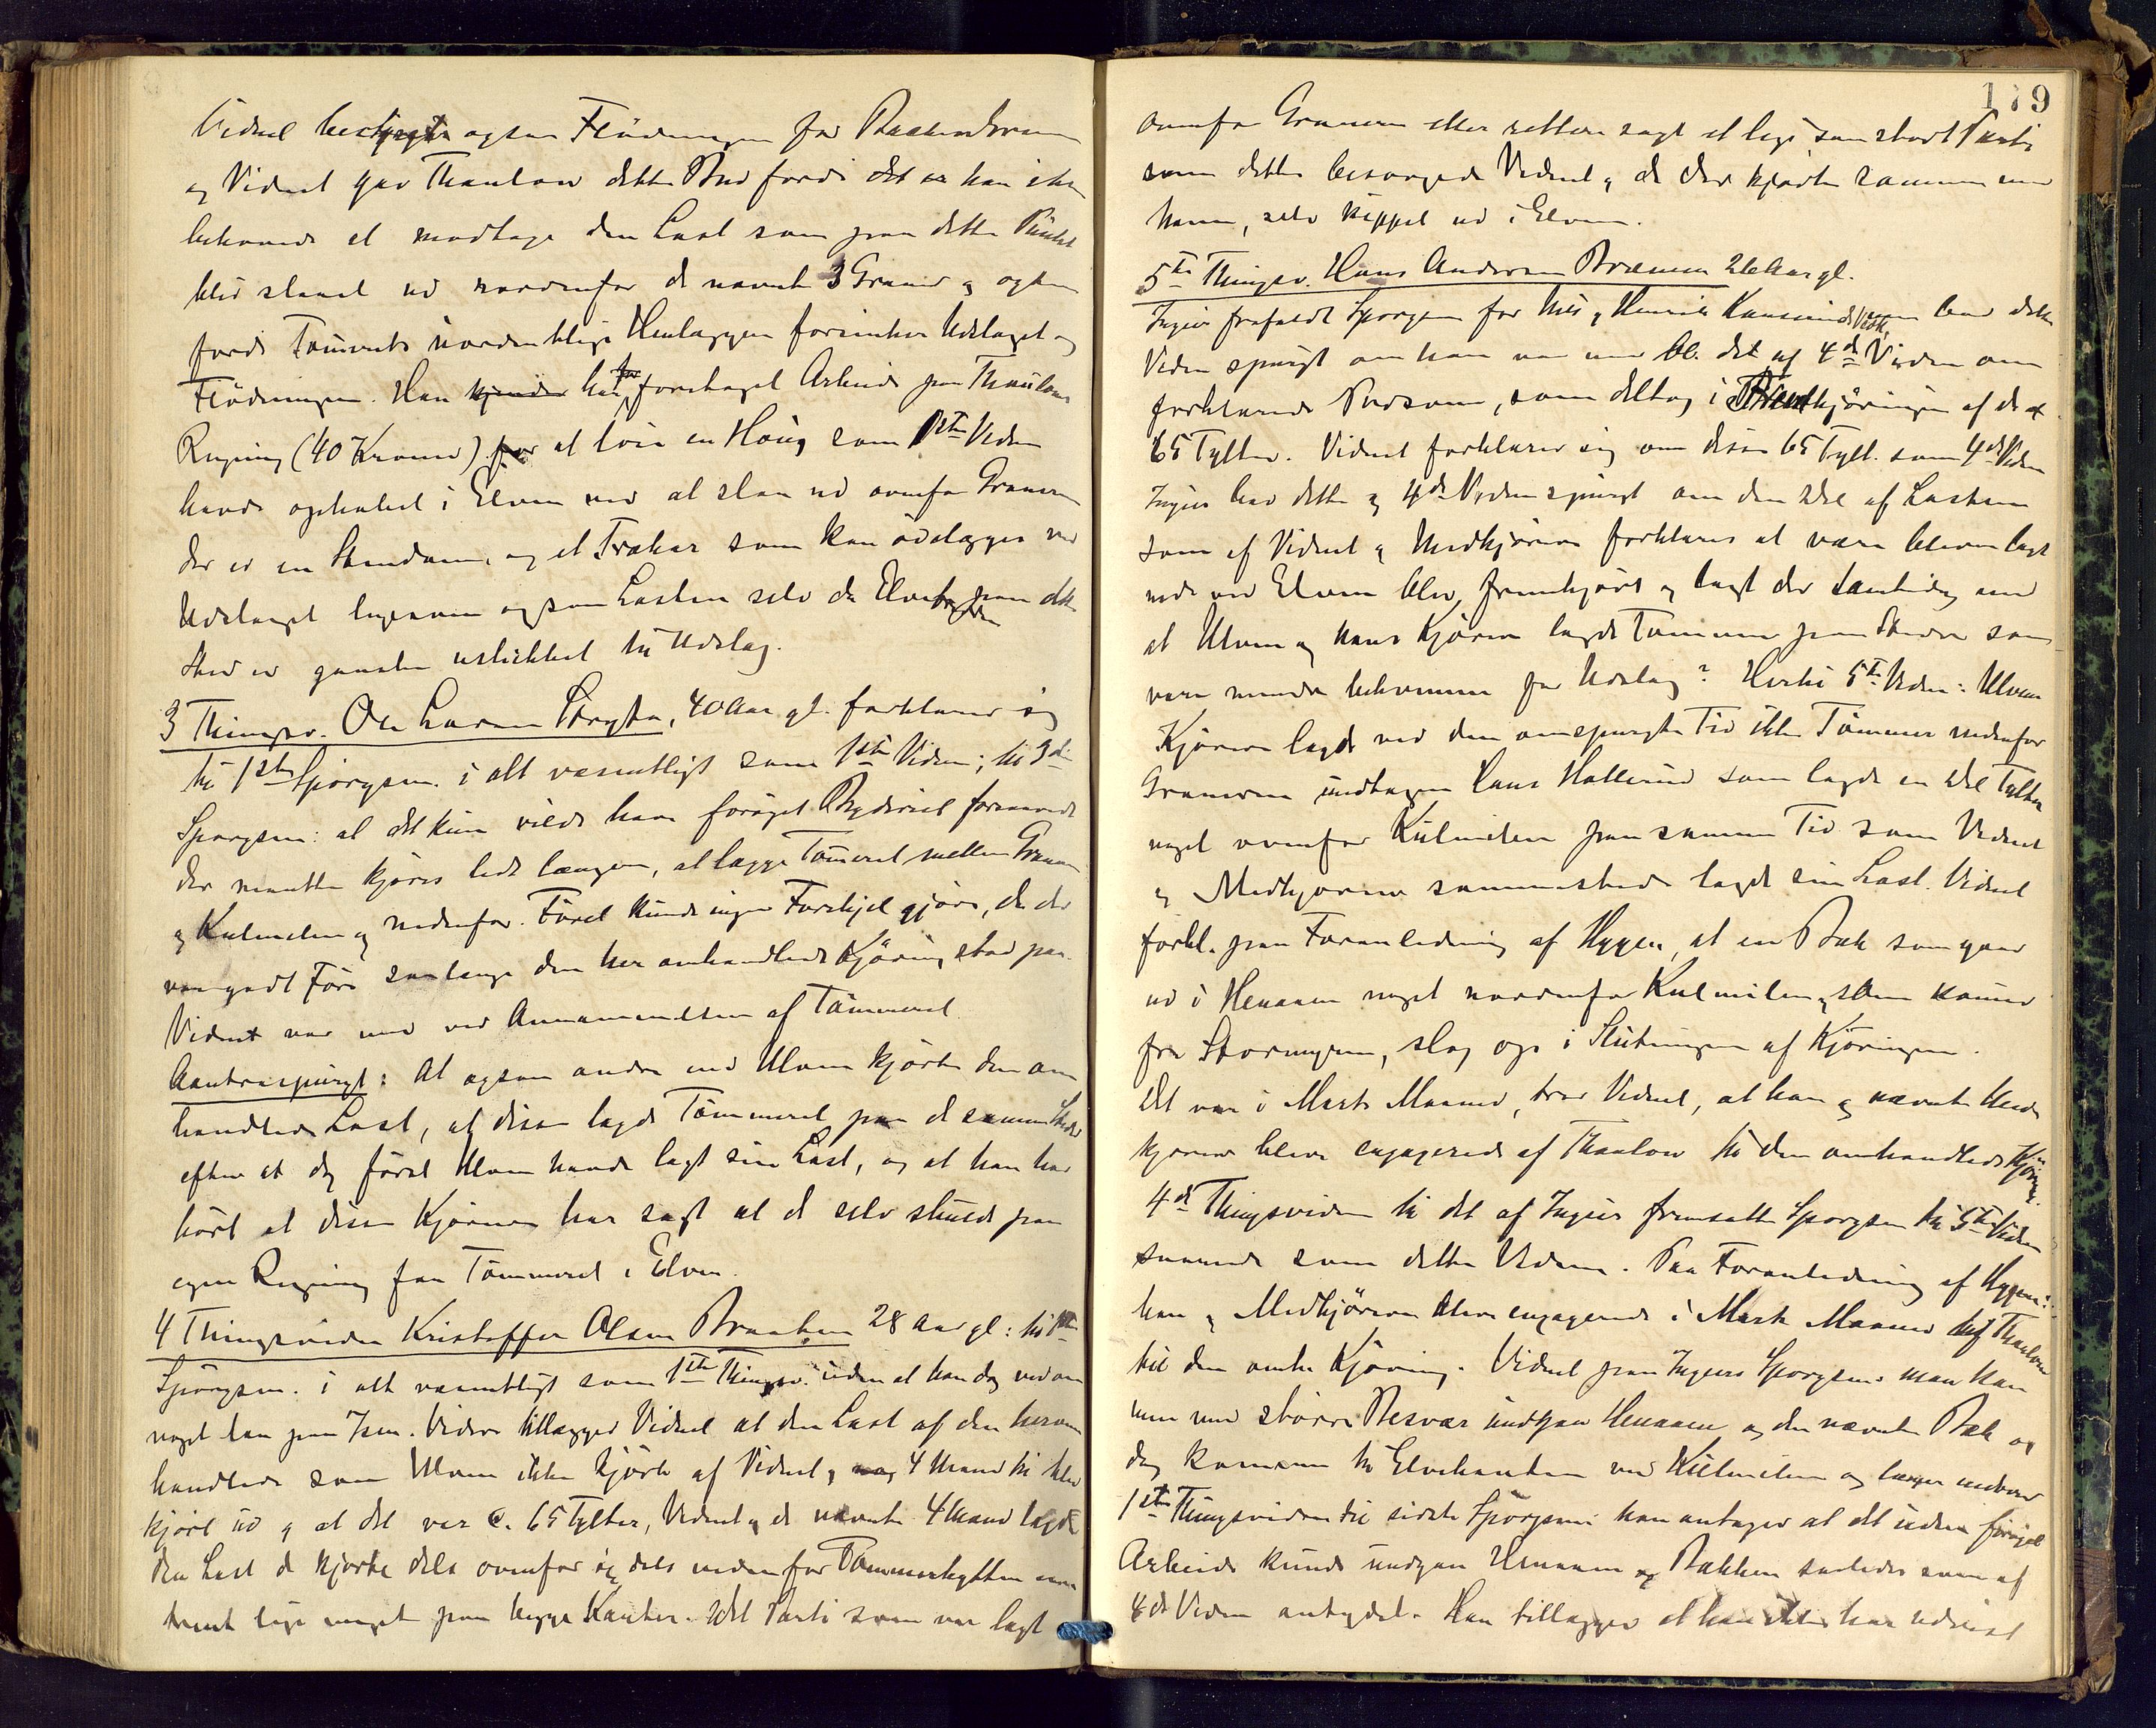 Vidnet besørgede ogsaa Flødningen for
og Vidnet gav Thaulow dette Bud fordi det er han ikke
behøvede at modtage den Last som paa dette Punkt
blev slaaet ud nordenfor de nævnte 3 Graner og ogsaa
fordi Tømrets uordentlige Henlæggen forsinker Udslaget og
Flødningen. Han kjender har for foretaget Arbeide paa Thaulows
Regning (40 Kroner) for at løse en Haug som 1ste Vidne
havde ophobet i Elven ved at slaa ud ovenfor Granerne
der er en Stendam, og et Trækar som kan ødelægges ved
Udslaget ligesom ogsaa Lasten selv da Elvebredden paa dette
Sted er ganske uskikket til Udslag.
3 Thingsv. Ole Larsen Strygen, 40 Aar gl. forklarer sig
til 1ste Spørgsm. i alt væsentligt som 1ste Vidne; til 3die
Spørgsm: at det kun vilde have forøget Byrderne forsaavidt
der maatte kjøres lidt længere, at lægge Tømmeret mellem Granerne
og Kulmilen og nedenfor. Føret kunde ingen Forskjel gjøre, da der
var godt Føre saalænge den her omhandlede Kjøring stod paa.
Vidnet var med ved Annammelsen af Tømmeret.
Contraspurgt: At ogsaa andre end Ulven kjørte den om
handlede Last, at disse lagde Tømmeret paa de samme Steder
efter at dog først Ulven havde lagt sin Last, og at han har
hørt at disse Kjørere har sagt at de selv skulde paa
egen Regning faa Tømmeret i Elven.
4 Thingsvidne Kristoffer Olsen Braaten 28 Aar gl: til 1ste
Spørgsm. i alt væsentligt som 1ste Thingsv. uden at han dog ved om
noget laa paa Isen. Videre tillægger Vidnet at den Last af den herom
handlede som Ulven ikke kjørte af Vidnet og 4 Mand til blev
kjørt ud og at det var c. 65 Tylter, Vidnet og de nævnte 4 Mand lagde
den Last de kjørte dels ovenfor og dels nedenfor Tømmerhytten om
trent lige meget paa begge Kanter. Det Parti som var lagt
179
ovenfor Granerne eller rettere sagt et lige saa stort Parti
som dette besørgede Vidnet og de der kjørte sammen med
ham, selv kippet ud i Elven.
5te Thingsv. Hans Andersen Bræmen 26 Aar gl.
Ingier frafaldt Spørgsm for Nils og Henrik Vedk. lod dette
Vidne spurgt om han var med bl. det af 4de Vidne om
forklarede Personer, som deltog i Fremkjøringen af de
65 Tylter. Vidnet forklarer sig om disse 65 Tylt. som 4de Vidne
Ingier lod dette og 4de Vidne spurgt om den Del af Lasten
som af Vidnet og Medkjørere forklares at være bleven lagt
nede ved Elven blev fremkjørt og lagt der samtidig med
at Ulven og hans Kjørere lagde Tømmer paa Steder som
vare mindre bekvemme for Udslag? Hertil 5te Vidne: Ulvens
Kjørere lagde ved den omspurgte Tid ikke Tømmer nedenfor
Granerne undtagen Hans Hallerud som lagde en Del Tylter
noget ovenfor Kulmilen paa samme Tid som Vidnet
og Medkjørerne sammesteds lagde sin Last. Vidnet
forkl. paa Foranledning af Hygen, at en Bæk som gaar
ud i Henaaen noget nordenfor Kulmilen, og som kommer
fra Stormyren, slog op i Slutningen af Kjøringen.
Det var i Marts Maaned, tror Vidnet, at han og nævnte Med
kjørere bleve engagerede af Thaulow til den omhandlede Kjøring.
4de Thingsvidne til det af Ingier fremsatte Spørgsm til 5te Vidne
svarende som dette Vidne. Paa Foranledning af Hygen:
han og Medkjørerne bleve engagerede i Marts Maaned af Thaulow
til den omh. Kjøring. Vidnet paa Ingiers Spørgsm: man kan
nu med større Besvær undgaa Henaaen og den nævnte Bæk og
dog komme til Elvekanten ved Kulmilen og længer nedover
1ste Thingsvidne til sidste Spørgsm: han antager at det uden forøget
Arbeide kunde undgaa Henaaen og Bækken saaledes som af
4de Vidne antydet. Han tillægger at han ikke har udvist